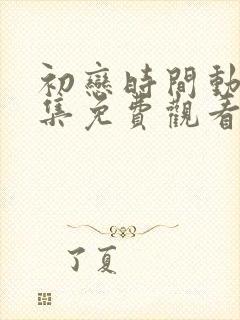 初戀時間動
集免費觀看
了夏